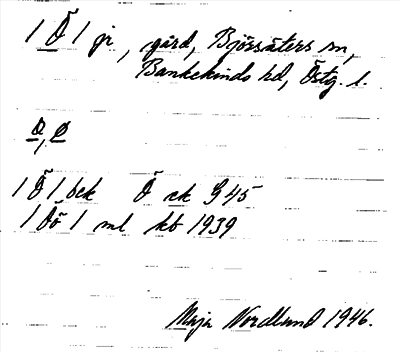 /Ö/ jr, gård, Björsäters sn,
Bankekinds hd, Östg. l.
Ö, Ö
/Ö/ bek Ö ek G45
/Öö/ ml kb 1939
Maja Nordlund 1946.